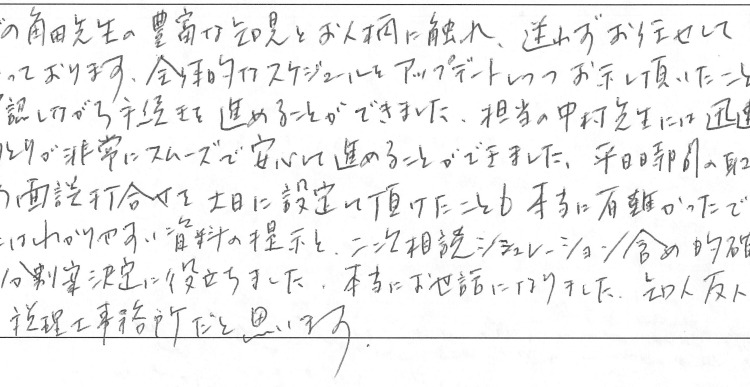 の角田先生の豊富な知見とお人柄に触れ、迷わずお任せして
っております。全体的なスケジュールをアップデートしつつお示し頂いたこと
認しながら手続きを進めることができました。担当の中村先生には迅速
とりが非常にスムーズで安心して進めることができました。平日時間の取
面談打合せを土日に設定して頂けたことも本当に有難かったで
はわかりやすい資料の提示と、二次相続シミュレーション含め的確
分割案決定に役立ちました。本当にお世話になりました。知人友人
税理士事務所だと思います。